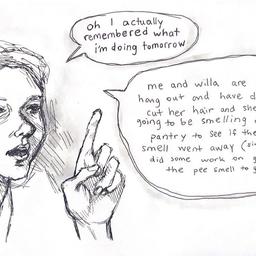 oh I actually
remembered what
i'm doing tomorrow
me and willa are
hang out and have
cut her hair and she
going to be smelling
pantry to see if the
smell went away
did some work on
the pee smell to